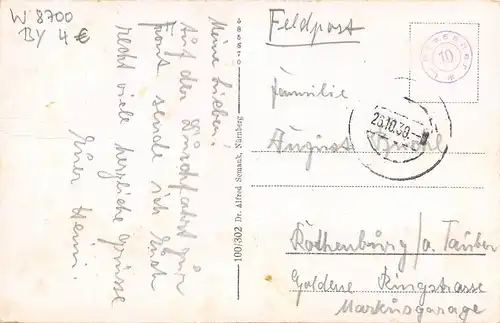 W 8700
BY 4 €
Meine Lieben!
Auf der Durchfahrt zur
Front sende ich Euch
recht viele herzliche Grüsse
Euer Heini.
1000/302 Dr. Alfred Semank, Nürnberg
Feldpost
10
26.10.39.-
Familie
August
Rothenburg /a. Tauber
Goldene Ringstrasse
Markusgarage